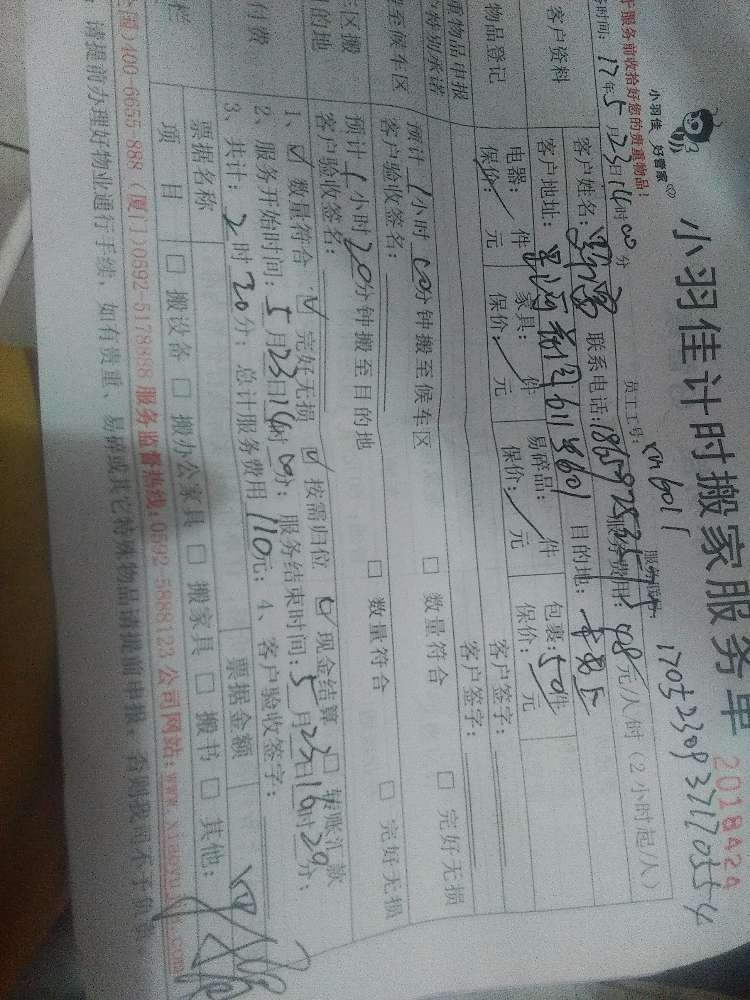 小羽佳 好管家
小羽佳计时搬家服务单
2018424
于服务前收拾好您的贵重物品!
员工工号:
务时间: 17年5月23日14时00分
服务费用: 48元/人时(2小时起/人)
客户资料
客户姓名:
联系电话:
客户地址:
目的地:
物品登记
电器: 件 家具: 件 易碎品: 件 包裹: 50件
保价: 元 保价: 元 保价: 元 保价: 元
重物品申报
客户签字:
户特别承诺
客户签字:
搬至候车区
预计1小时00分钟搬至候车区 □ 数量符合 □ 完好无损
客户验收签名:
车区搬
目的地
预计1小时20分钟搬至目的地 □ 数量符合 □ 完好无损
客户验收签名:
付费
1、☑ 数量符合 ☑ 完好无损 ☑ 按需归位 ☑ 现金结算 □ 转账汇款
2、服务开始时间: 5月23日14时00分; 服务结束时间: 5月23日16时20分;
3、共计: 2时20分; 总计服务费用110元; 4、客户验收签字:
栏
票据名称
票据金额
项目
□ 搬设备 □ 搬办公家具 □ 搬家具 □ 搬书 □ 其他:
全国)400-6655-888 (厦门)0592-5178888 服务监督热线:0592-5888123 公司网站:www.xiaoyu
请提前办理好物业通行手续,如有贵重、易碎或其它特殊物品请提前申报,否则我司不予负